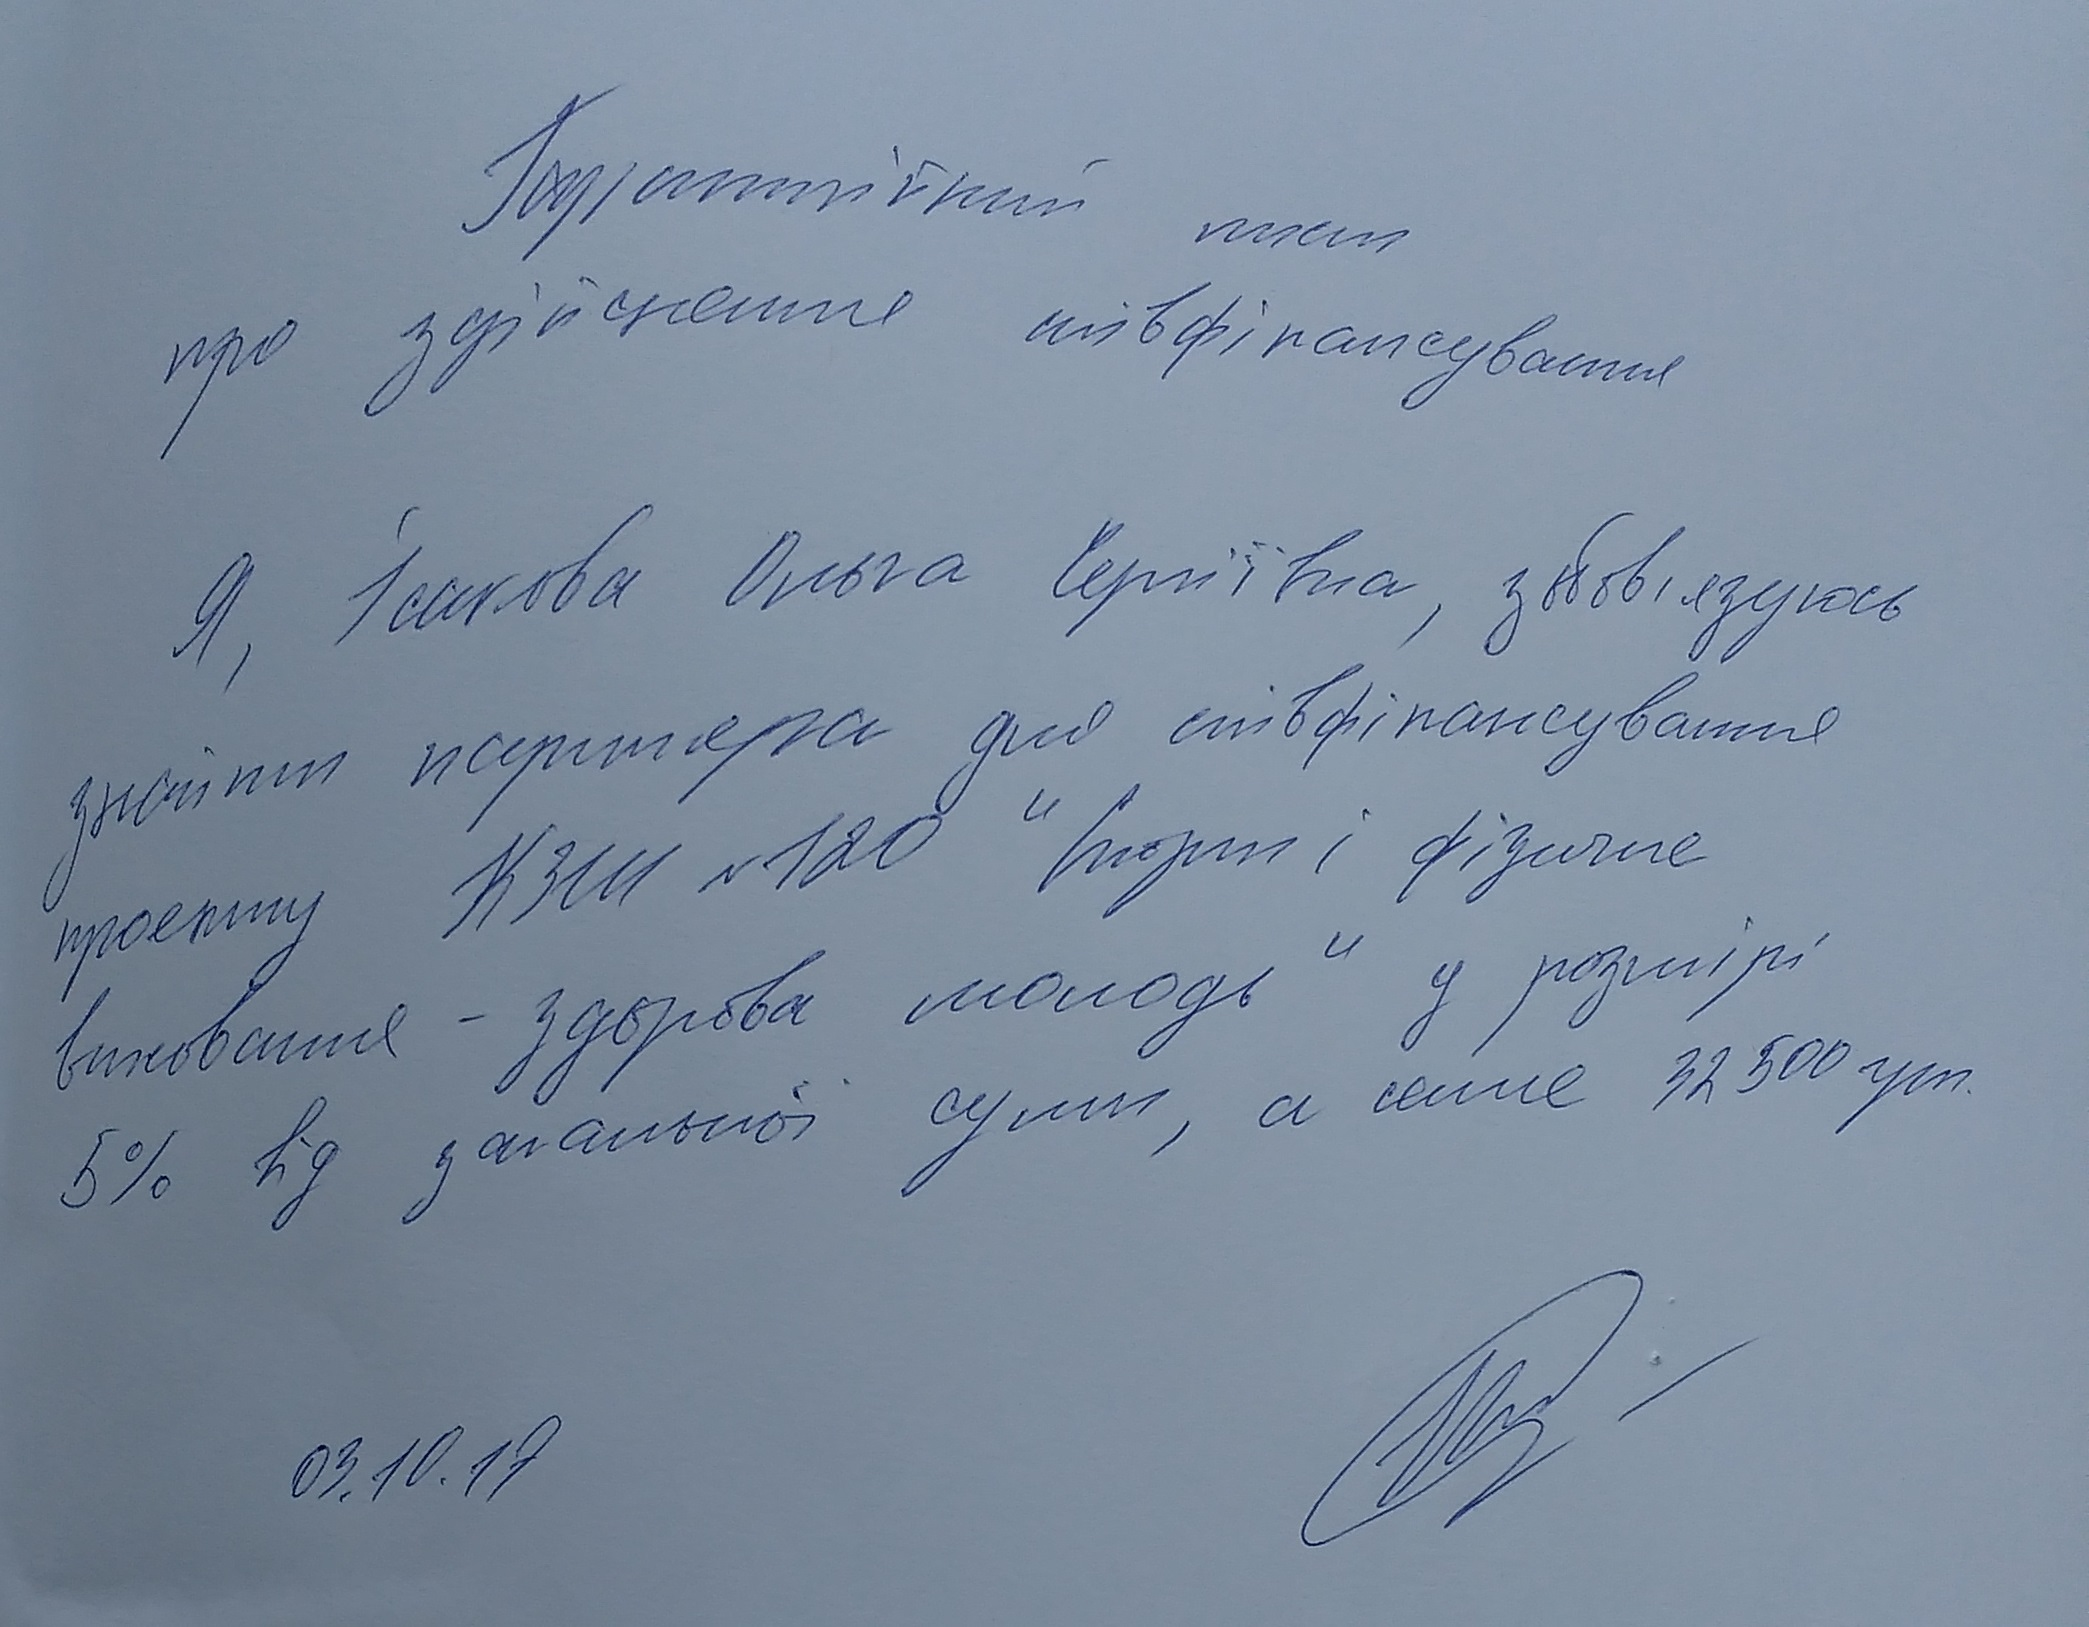 Гарантійний лист
про здійснення співфінансування
Я, Ісакова Ольга Сергіївна, зобов'язуюсь
знайти партнера для співфінансування
проекту КЗШ №120 "Спорт і фізичне
виховання - здорова молодь" у розмірі
5% від загальної суми, а саме 32 500 грн.
03.10.17